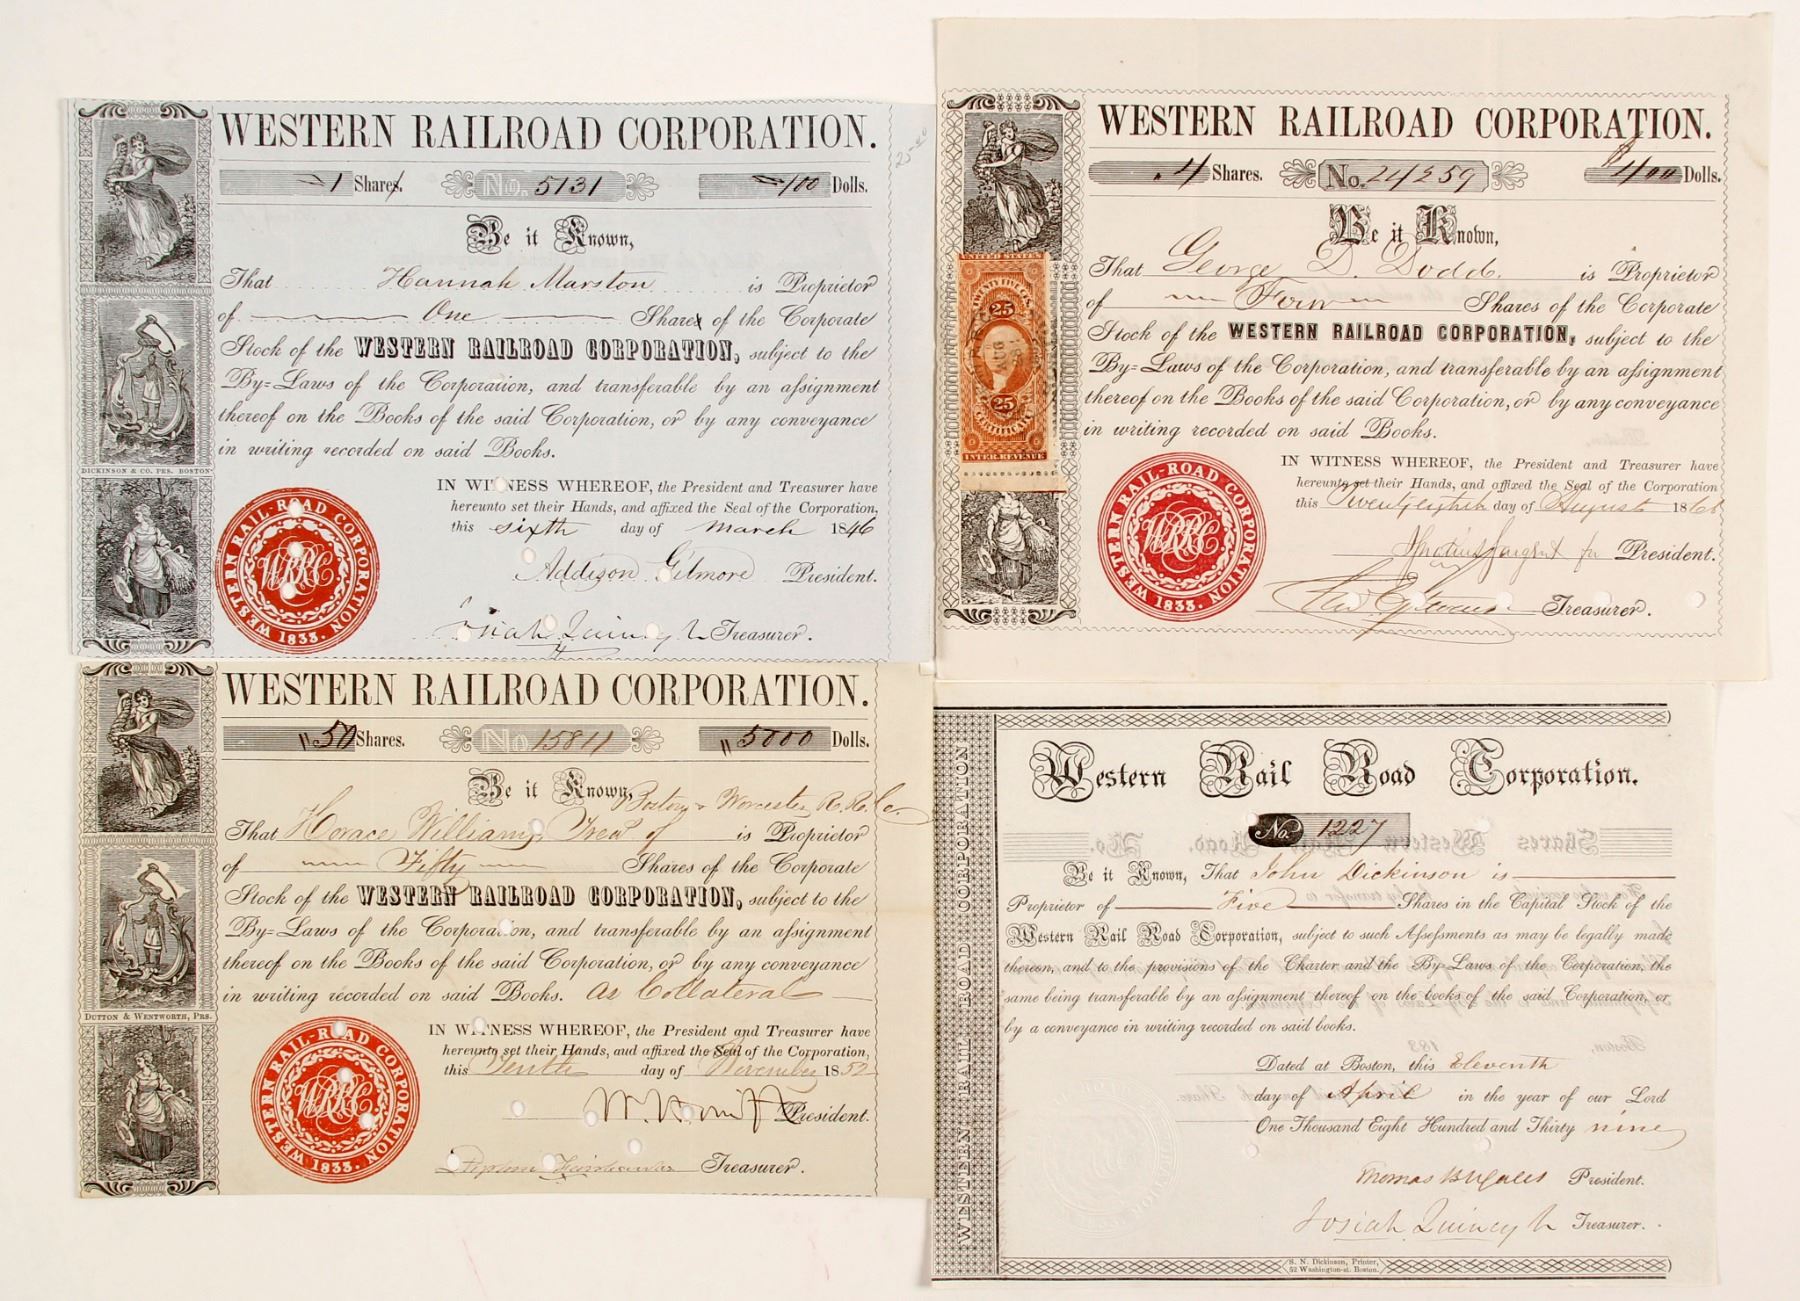 WESTERN RAILROAD CORPORATION.
1 Shares. No. 5131 100 Dolls.
25.00
Be it Known,
That Hannah Marston is Proprietor
of One Shares of the Corporate
Stock of the WESTERN RAILROAD CORPORATION, subject to the
By=Laws of the Corporation, and transferable by an assignment
thereof on the Books of the said Corporation, or by any conveyance
in writing recorded on said Books.
DICKINSON & CO. PRS. BOSTON
IN WITNESS WHEREOF, the President and Treasurer have
hereunto set their Hands, and affixed the Seal of the Corporation,
this sixth day of March 1846
Addison Gilmore President.
Josiah Quincy Jr Treasurer.
WESTERN RAIL-ROAD CORPORATION
WRRC
1833.
WESTERN RAILROAD CORPORATION.
4 Shares. No. 24259 $400 Dolls.
Be it Known,
That George D. Dodd is Proprietor
of Four Shares of the Corporate
Stock of the WESTERN RAILROAD CORPORATION, subject to the
By=Laws of the Corporation, and transferable by an assignment
thereof on the Books of the said Corporation, or by any conveyance
in writing recorded on said Books.
25
AUG
25
CERTIFICATE
INTER. REVENUE
IN WITNESS WHEREOF, the President and Treasurer have
hereunto set their Hands, and affixed the Seal of the Corporation
this Twentyeighth day of August 186
for President.
Treasurer.
WESTERN RAIL-ROAD CORPORATION
WRRC
1833.
WESTERN RAILROAD CORPORATION.
50 Shares. No 15811 5000 Dolls.
Be it Known, Boston & Worcester R. R. Co.
That Horace Williams Treas of is Proprietor
of Fifty Shares of the Corporate
Stock of the WESTERN RAILROAD CORPORATION, subject to the
By=Laws of the Corporation, and transferable by an assignment
thereof on the Books of the said Corporation, or by any conveyance
in writing recorded on said Books. as Collateral
DUTTON & WENTWORTH, PRS.
IN WITNESS WHEREOF, the President and Treasurer have
hereunto set their Hands, and affixed the Seal of the Corporation,
this Tenth day of November 1852
President.
Stephen Fairbanks Treasurer.
WESTERN RAIL-ROAD CORPORATION
WRRC
1833.
WESTERN RAIL ROAD CORPORATION
Western Rail Road Corporation.
No. 1227
Be it Known, That John Dickinson is
Proprietor of Five Shares in the Capital Stock of the
Western Rail Road Corporation, subject to such Assessments as may be legally made
thereon, and to the provisions of the Charter and the By-Laws of the Corporation, the
same being transferable by an assignment thereof on the books of the said Corporation, or
by a conveyance in writing recorded on said books.
Dated at Boston, this Eleventh
day of April in the year of our Lord
One Thousand Eight Hundred and Thirty nine
Thomas B Wales President.
Josiah Quincy Jr Treasurer.
S. N. Dickinson, Printer,
52 Washington-st. Boston.